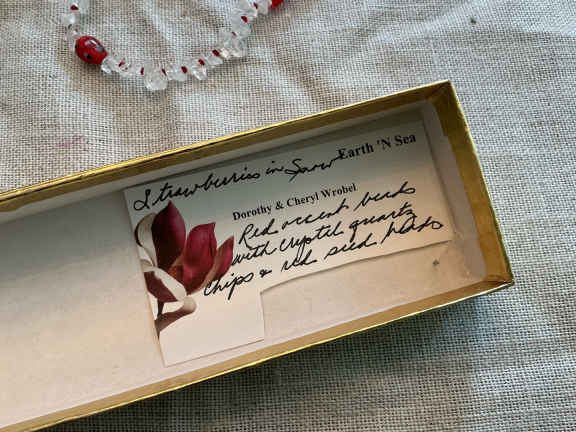 Strawberries in Snow Earth 'N Sea
Dorothy & Cheryl Wrobel
Red accent beads
with crystal quartz
chips & red seed beads